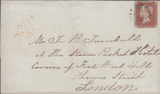 Mr T. B. Turnbull
At the Steam Packet Hotel
Corner of Fish Street Hill
Thames Street
London